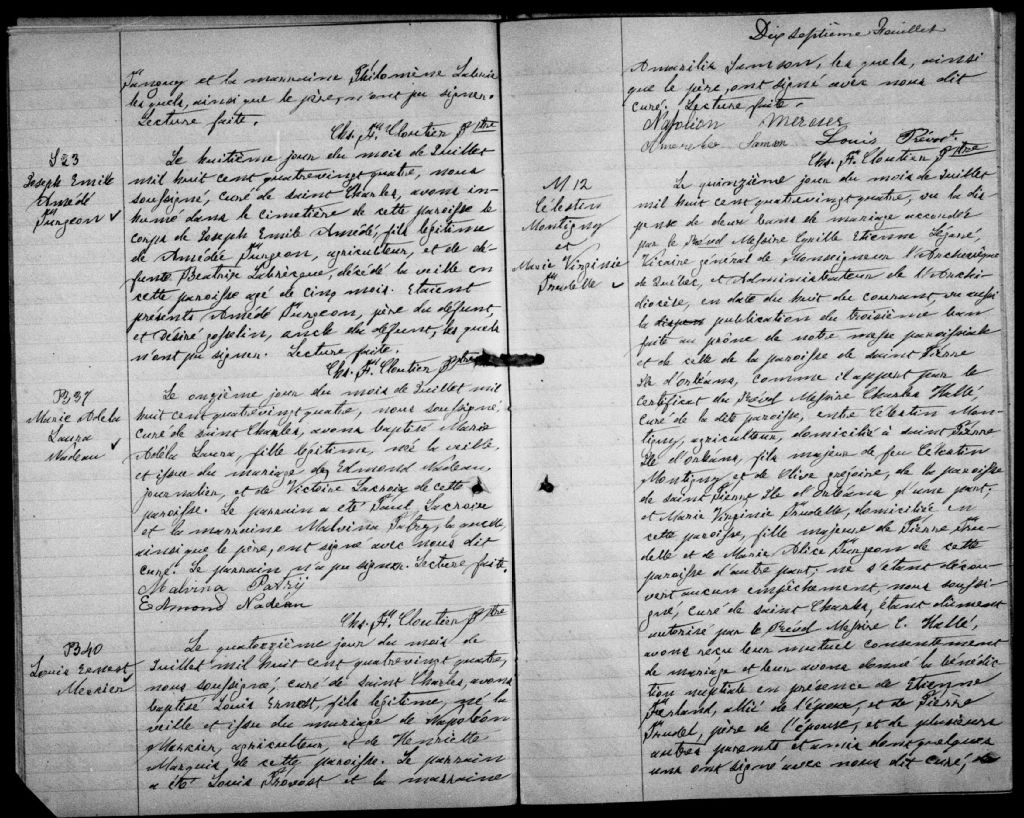 Turgeon et la marraine Philomène Labrie
les quels, ainsi que le père, n'ont pu signer.
Lecture faite.
Chs. F. Cloutier Ptre
S23
Joseph Emile
Amédé
Turgeon
Le huitième jour du mois de Juillet
mil huit cent quatrevingt quatre, nous
soussigné, curé de saint Charles, avons in-
humé dans le cimetière de cette paroisse le
corps de Joseph Emile Amédé, fils légitime
de Amédée Turgeon, agriculteur, et de dé-
funte Beatrice Labrecque, décédé la veille en
cette paroisse agé de cinq mois. Etaient
présents Amédé Turgeon, père du défunt,
et Désiré gosselin, oncle du défunt, les quels
n'ont pu signer. Lecture faite.
Chs. F. Cloutier Ptre
B37
Marie Adéla
Laura
Nadeau
Le onzième jour du mois de Juillet mil
huit cent quatrevingt quatre, nous soussigné,
curé de saint Charles, avons baptisé Marie
Adéla Laura, fille légitime, née la veille
et issue du mariage de Edmond Nadeau,
journalier, et de Victoire Lacroix de cette
paroisse. Le parrain a été Paul Lacroix
et la marraine Malvina Patry, la quelle,
ainsi que le père, ont signé avec nous dit
curé. Le parrain n'a pu signer. Lecture faite.
Malvina Patry
Edmond Nadeau
Chs. F. Cloutier Ptre
B40
Louis Ernest
Mercier
Le quatorzième jour du mois de
Juillet mil huit cent quatrevingt quatre,
nous soussigné, curé de saint Charles, avons
baptisé Louis Ernest, fils légitime, né la
veille et issu du mariage de Napoléon
Mercier, agriculteur, et de Henriette
Marquis de cette paroisse. Le parrain
a été Louis Provost et la marraine
Dix septième Feuillet
Amarilis Samson, les quels, ainsi
que le père, ont signé avec nous dit
curé. Lecture faite.
Napoléon Mercier
Samson Louis Prévot
Chs. F. Cloutier Ptre
M12
Célestin
Montigny
et
Marie Virginie
Trudelle
Le quinzième jour du mois de Juillet
mil huit cent quatrevingt quatre, vu la dis
pense de deux bans de mariage accordée
par le Révd Messire Cyrille Etienne Légaré,
Vicaire général de Monseigneur l'Archevêque
de Québec, et Administrateur de l'Archi-
diocèse, en date du huit du courant, vu aussi
la dispen publication du troisième ban
faite au prône de notre messe paroissiale
et de celle de la paroisse de saint Pierre
Ile d'orléans, comme il appert par le
certificat du Révd Messire Charles Hallé,
curé de la dite paroisse, entre Célestin Mon-
tigny, agriculteur, domicilié à saint Pierre
Ile d'orléans, fils majeur de feu Célestin
Montigny et de Olive grégoire, de la paroisse
de saint Pierre Ile d'orléans d'une part;
et Marie Virginie Trudelle, domiciliée en
cette paroisse, fille majeure de Pierre Tru-
delle et de Marie Alice Turgeon de cette
paroisse d'autre part; ne s'étant décou-
vert aucun empêchement, nous soussi-
gné, curé de saint Charles, étant dûment
autorisé par le Révd Messire C. Hallé,
avons reçu leur mutuel consentement
de mariage et leur avons donné la bénédic-
tion nuptiale en présence de Etienne
Ferland, allié de l'époux, et de Pierre
Trudel, père de l'épouse, et de plusieurs
autres parents et amis dont quelques
uns ont signé avec nous dit curé,